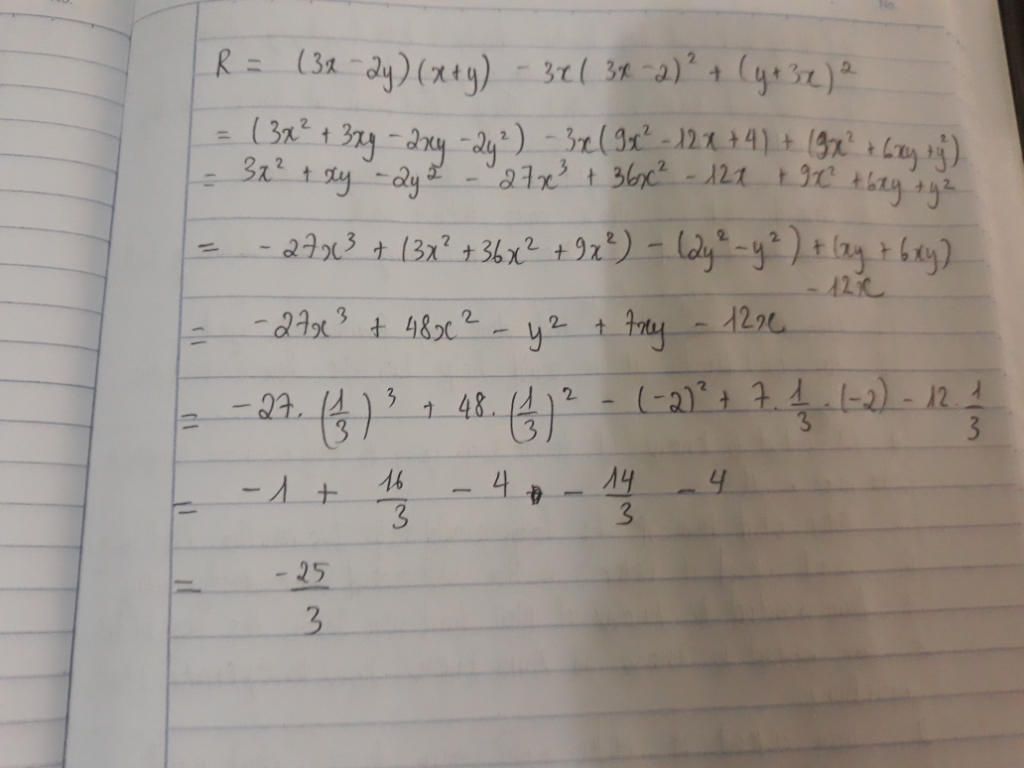 No.
No.
R = (3x - 2y)(x+y) - 3x(3x - 2)² + (y+3x)²
= (3x² + 3xy - 2xy - 2y²) - 3x(9x² - 12x + 4) + (9x² + 6xy + y²)
= 3x² + xy - 2y² - 27x³ + 36x² - 12x + 9x² + 6xy + y²
= - 27x³ + (3x² + 36x² + 9x²) - (2y² - y²) + (xy + 6xy)
- 12x
= -27x³ + 48x² - y² + 7xy - 12x
= -27. (1/3)³ + 48. (1/3)² - (-2)² + 7. 1/3 . (-2) - 12. 1/3
= -1 + 16/3 - 4 - 14/3 - 4
= -25/3